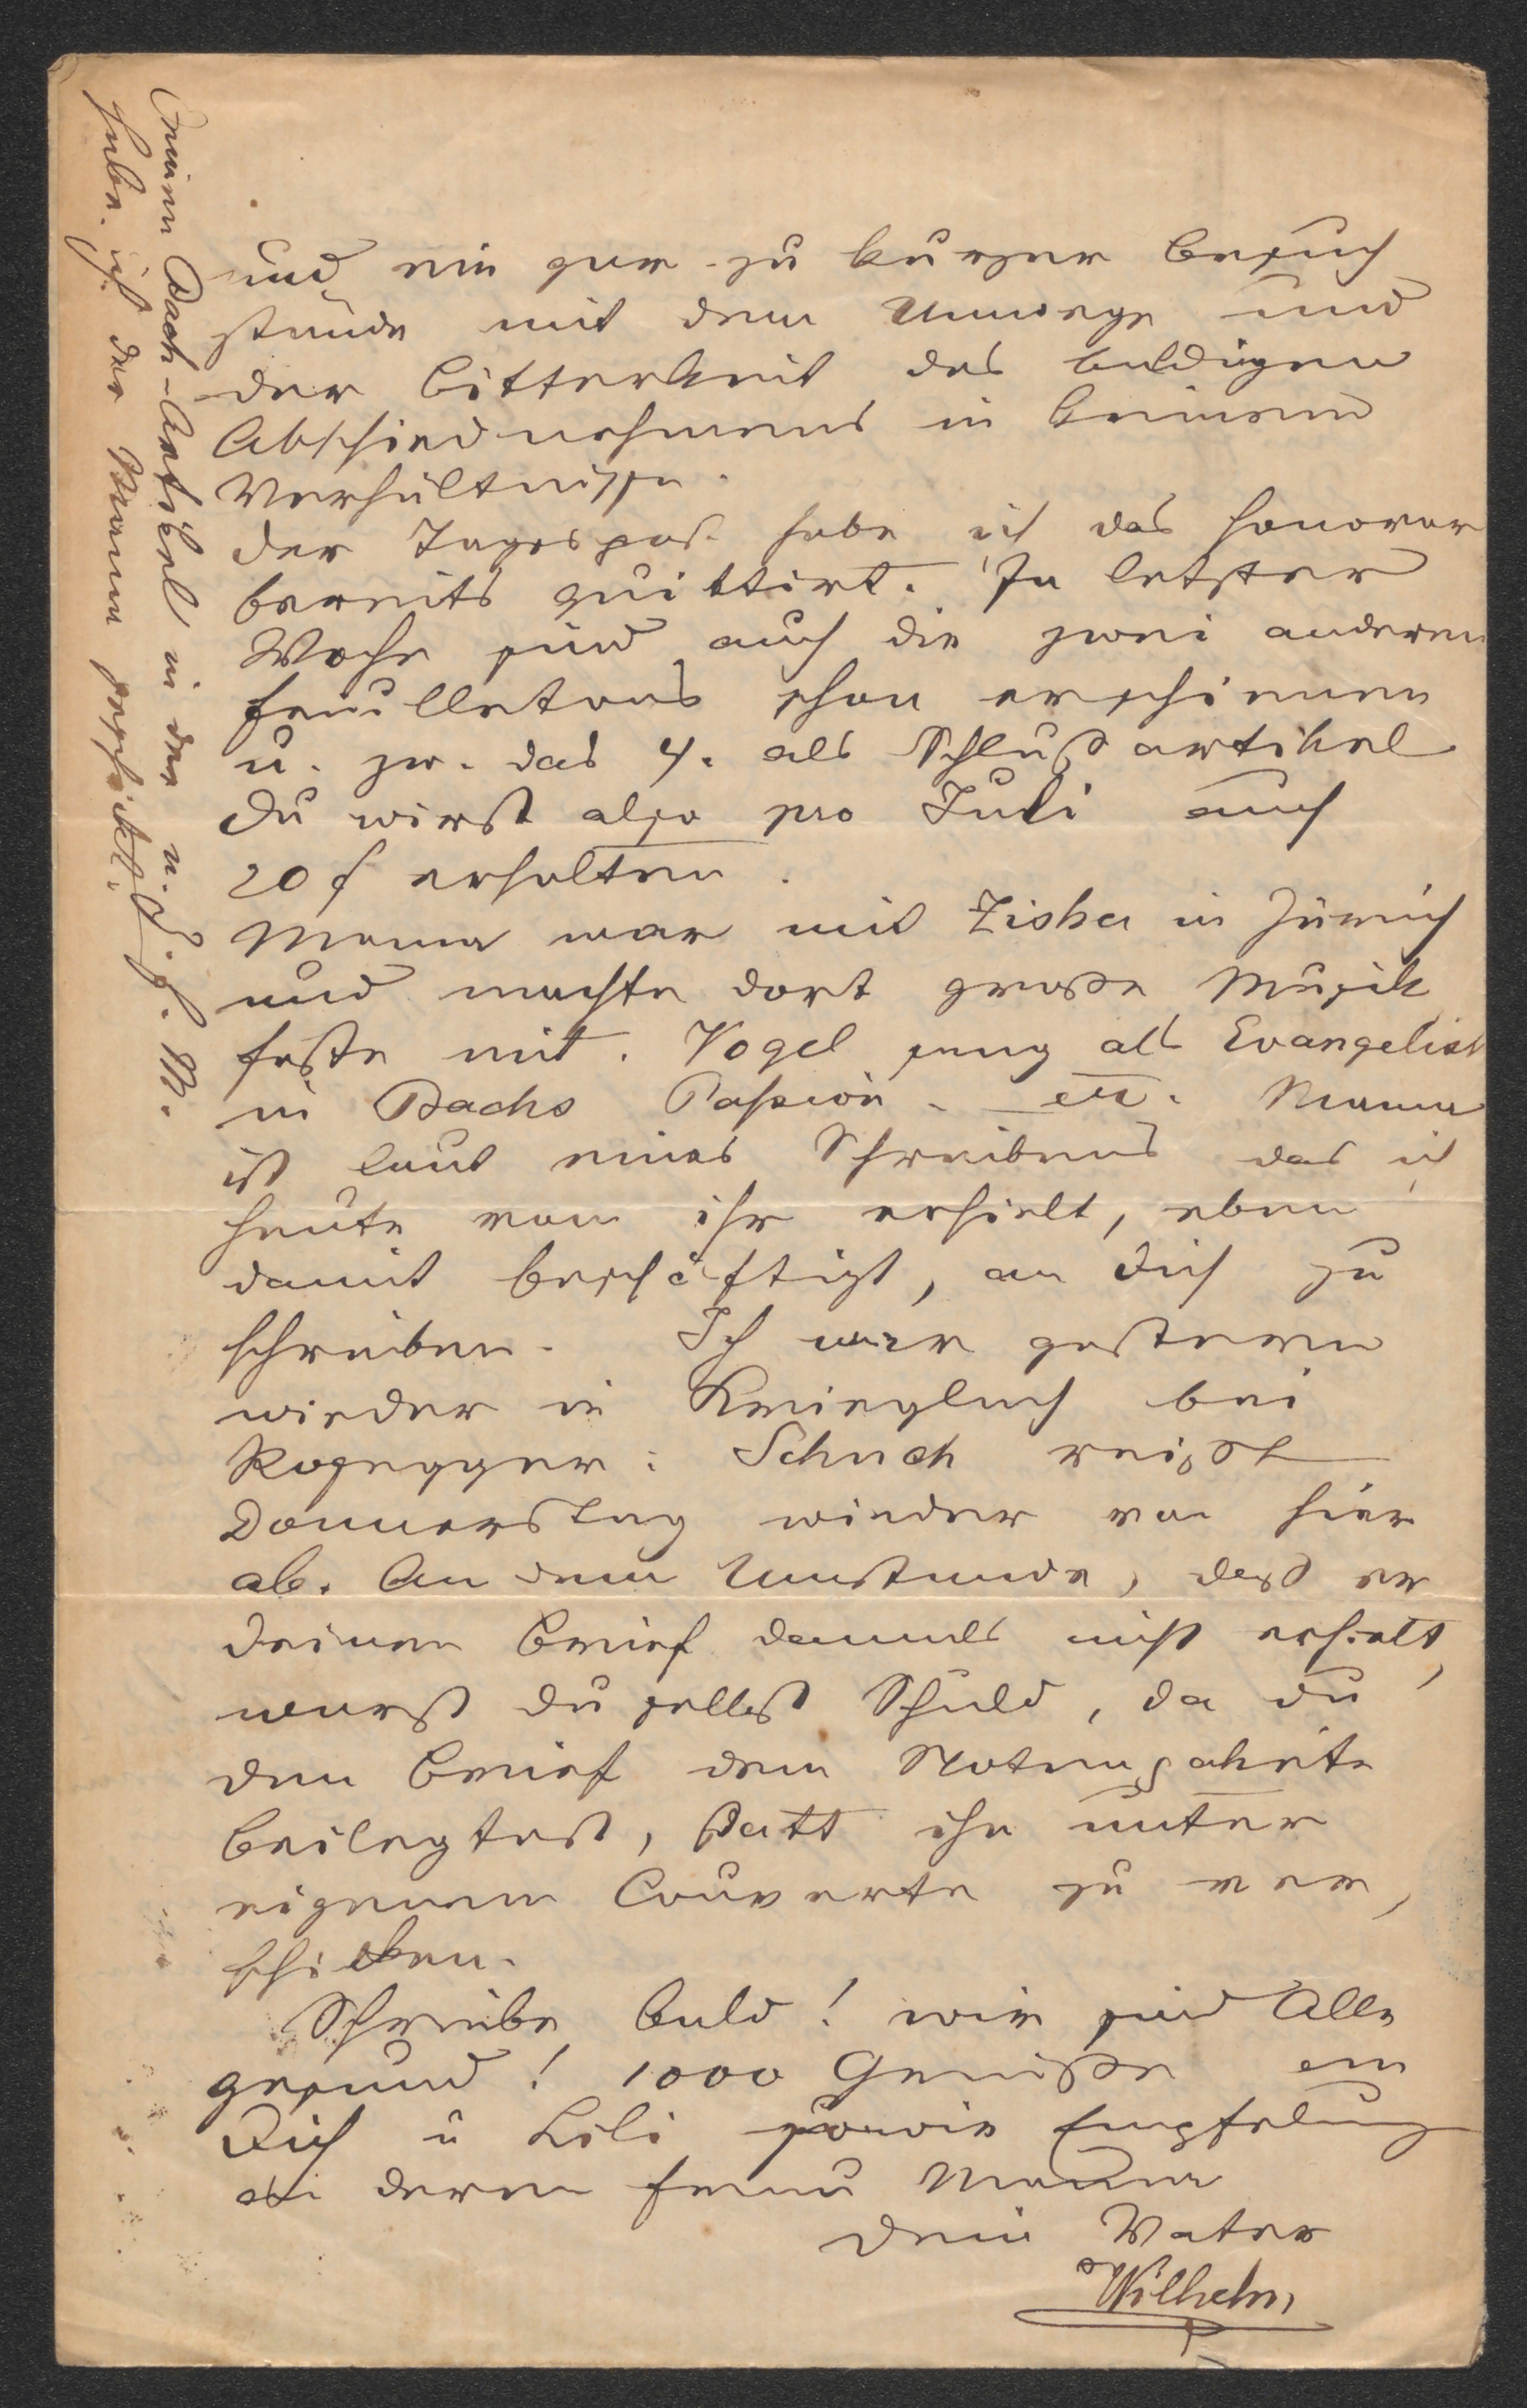 und ein gar zu kurzer Besuch
stünde mit dem Umwege und
der Bitterkeit des baldigen
Abschiednehmens in keinem
Verhältnisse.
Der Tagespost habe ich das Honorar
bereits quittirt. In letzter
Woche sind auch die zwei anderen
Feuilletons schon erschienen
u. zw. das 4. als Schlußartikel
Du wirst also pro Juli auch
20 f erhalten.
Mama war mit Ziska in Zürich
und machte dort große Musik
feste mit. Vogel sang als Evangelist
in Bachs Passion. etc. Mama
ist laut eines Schreibens das ich
heute von ihr erhielt, eben
damit beschäftigt, an Dich zu
schreiben. Ich war gestern
wieder in Krieglach bei
Rosegger: Schuch reißt
Donnerstag wieder von hier
ab. An dem Umstande, daß er
Deinen Brief damals nicht erhielt,
warst Du selbst Schuld, da Du
den Brief dem Notenpakete
beilegtest, statt ihn unter
eigenem Couverte zu ver,
schicken.
Schreibe bald! wir sind Alle
gesund! 1000 Grüße an
Dich u Lili sowie Empfelung
an deren Frau Mama
Dein Vater
Wilhelm
Meinen Bach-Artikel in der n. Z. f. M.
habe ich der Mama geschickt.